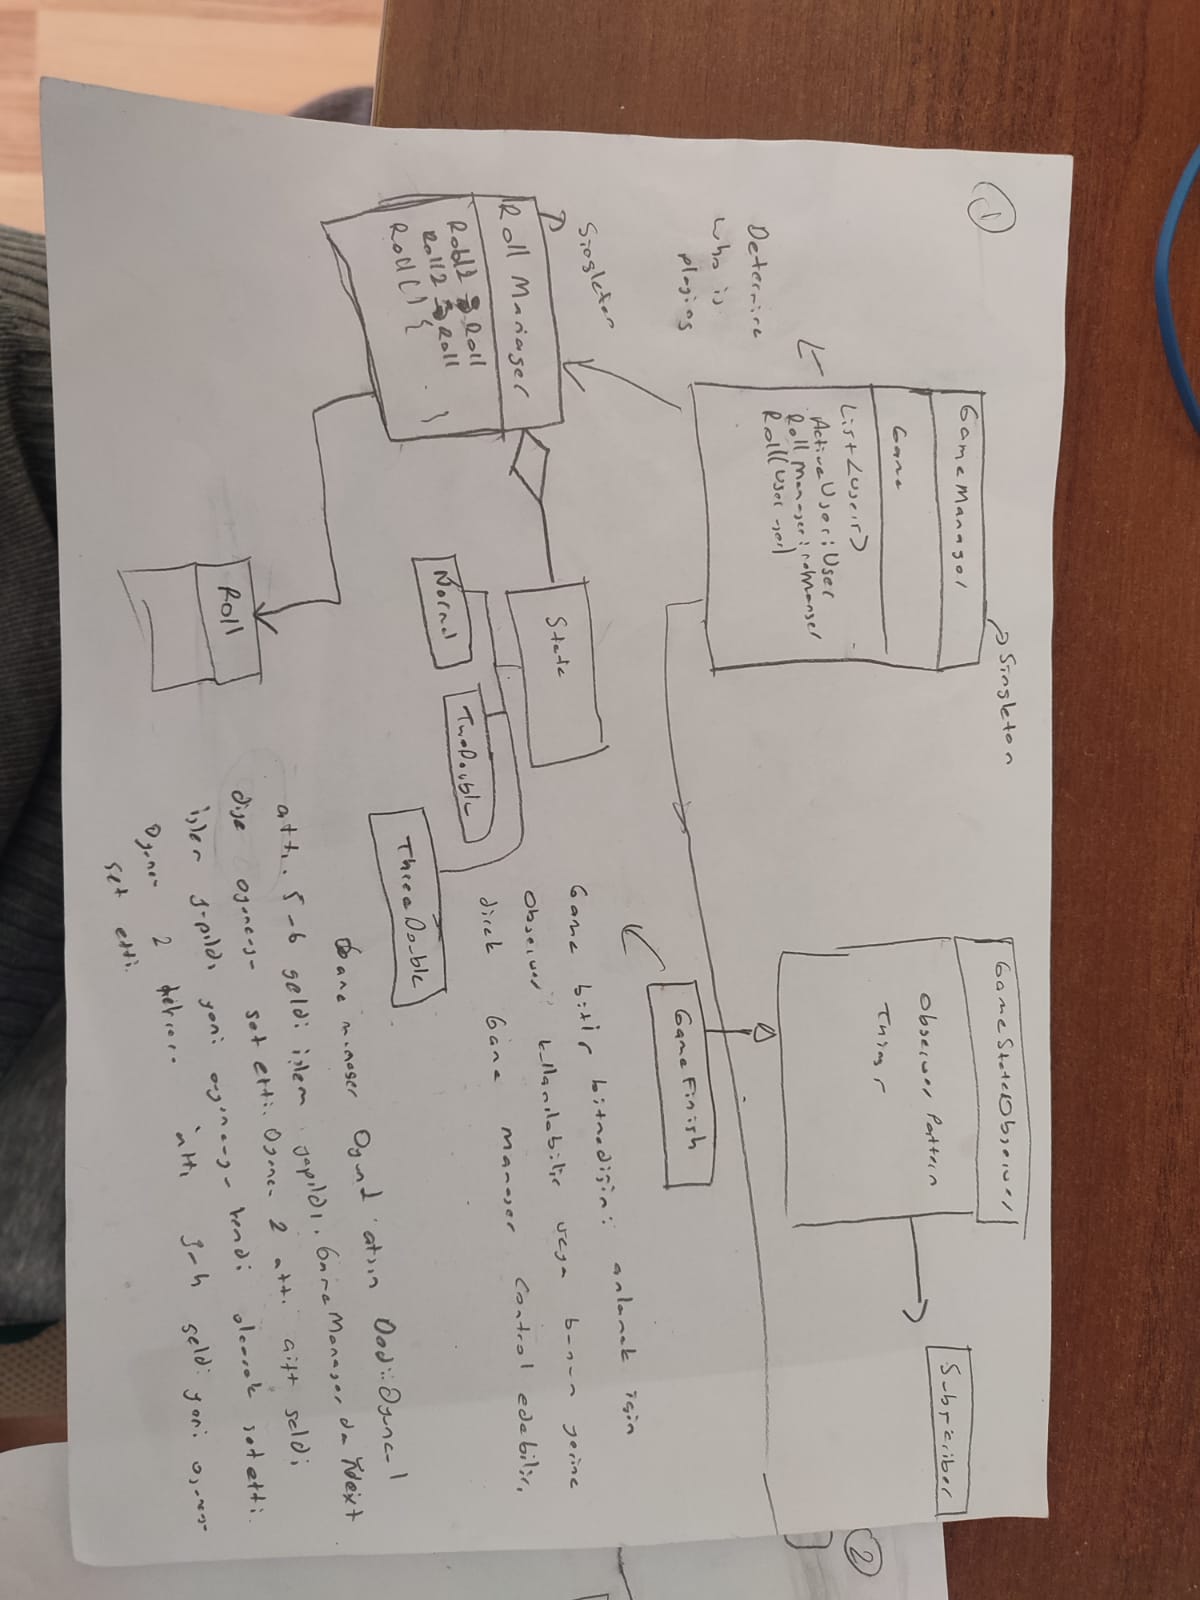 1
GameManager
Singleton
Game
List<User>
ActiveUser: User
Roll Manager: rollManager
Roll(User user)
Determine
who is
playing
Singleton
Roll Manager
Roll1 Roll
Roll2 Roll
Roll() {
}
State
Normal
TwoDouble
ThreeDouble
Roll
GameStateObserver
Observer Pattern
Subscriber
GameFinish
Game bitir bitmediğini anlamak için
Observer kullanılabilir veya bunun yerine
direk Game manager control edebilir.
Game manager Oyun1 atsın Dedi: Oyuncu 1
attı. 5-6 geldi işlem yapıldı. GameManager da Next
diye oyuncuyu set etti. Oyuncu 2 attı çift geldi
işlem yapıldı yani oyuncuyu kendi olarak set etti.
Oyuncu 2 tekrar attı 3-4 geldi yani oyuncuyu
set etti.
2